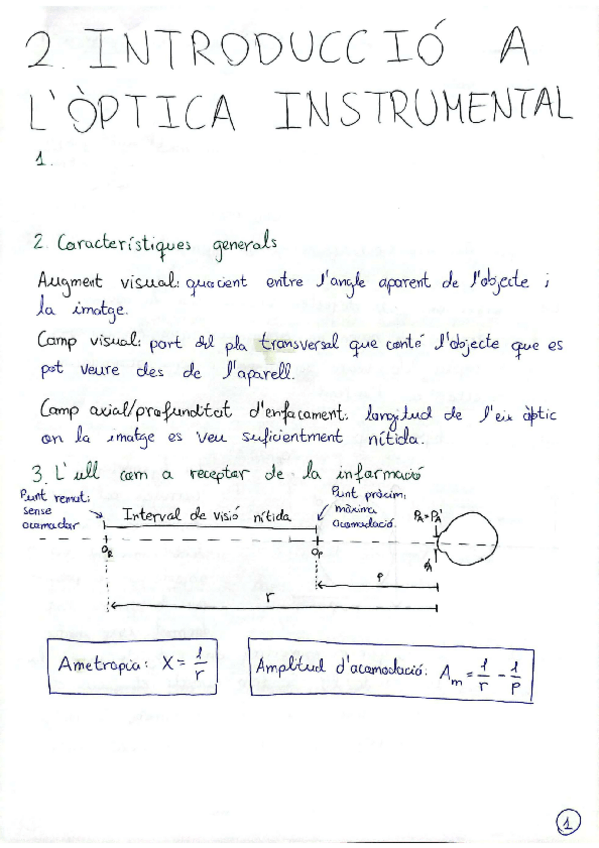 2. INTRODUCCIÓ A
L'ÒPTICA INSTRUMENTAL
1.
2. Característiques generals
Augment visual: quocient entre l'angle aparent de l'objecte i
la imatge.
Camp visual: part del pla transversal que conté l'objecte que es
pot veure des de l'aparell.
Camp axial/profunditat d'enfocament: longitud de l'eix òptic
on la imatge es veu suficientment nítida.
3. L'ull com a receptor de la informació
Punt remot:
sense
acomodar
Interval de visió nítida
Punt pròxim:
màxima
acomodació.
O_R
O_P
P
r
Ametropia: X = 1/r
Amplitud d'acomodació: A_m = 1/r - 1/p
1